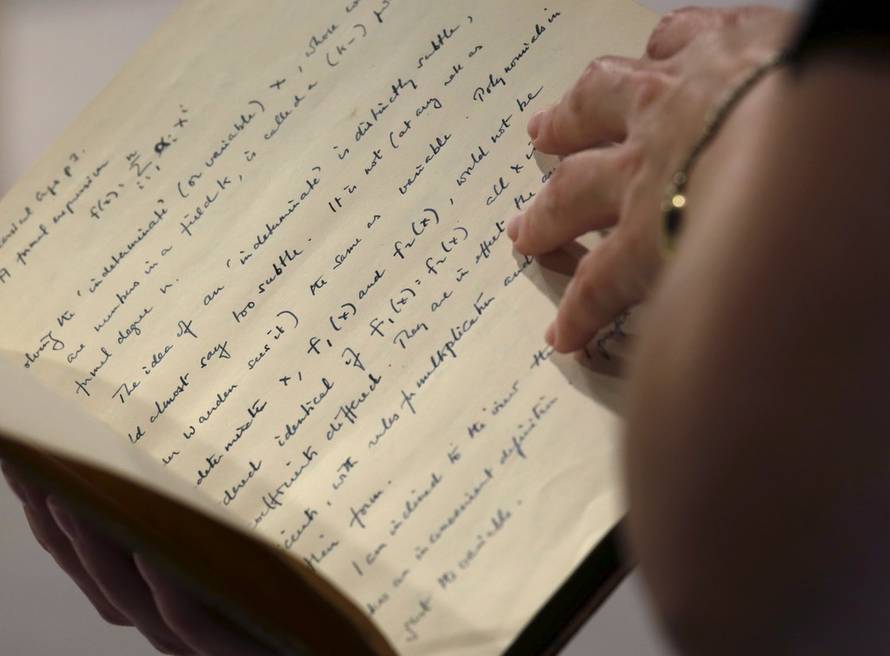 A formal expression
f(x) = Σ αi xi
involving the 'indeterminate' (or variable) x, whose
are numbers in a field K, is called a (K-)
formal degree n.
The idea of an 'indeterminate' is distinctly subtle,
almost say too subtle. It is not (at any rate as
Waerden sees it) the same as variable. Polynomials in
indeterminate x, f1(x) and f2(x), would not be
identical if f1(x) = f2(x) all x
coefficients differed. They are in effect the
, with rules for multiplication and
their form.
I am inclined to the view
an inconvenient definition
the variable.